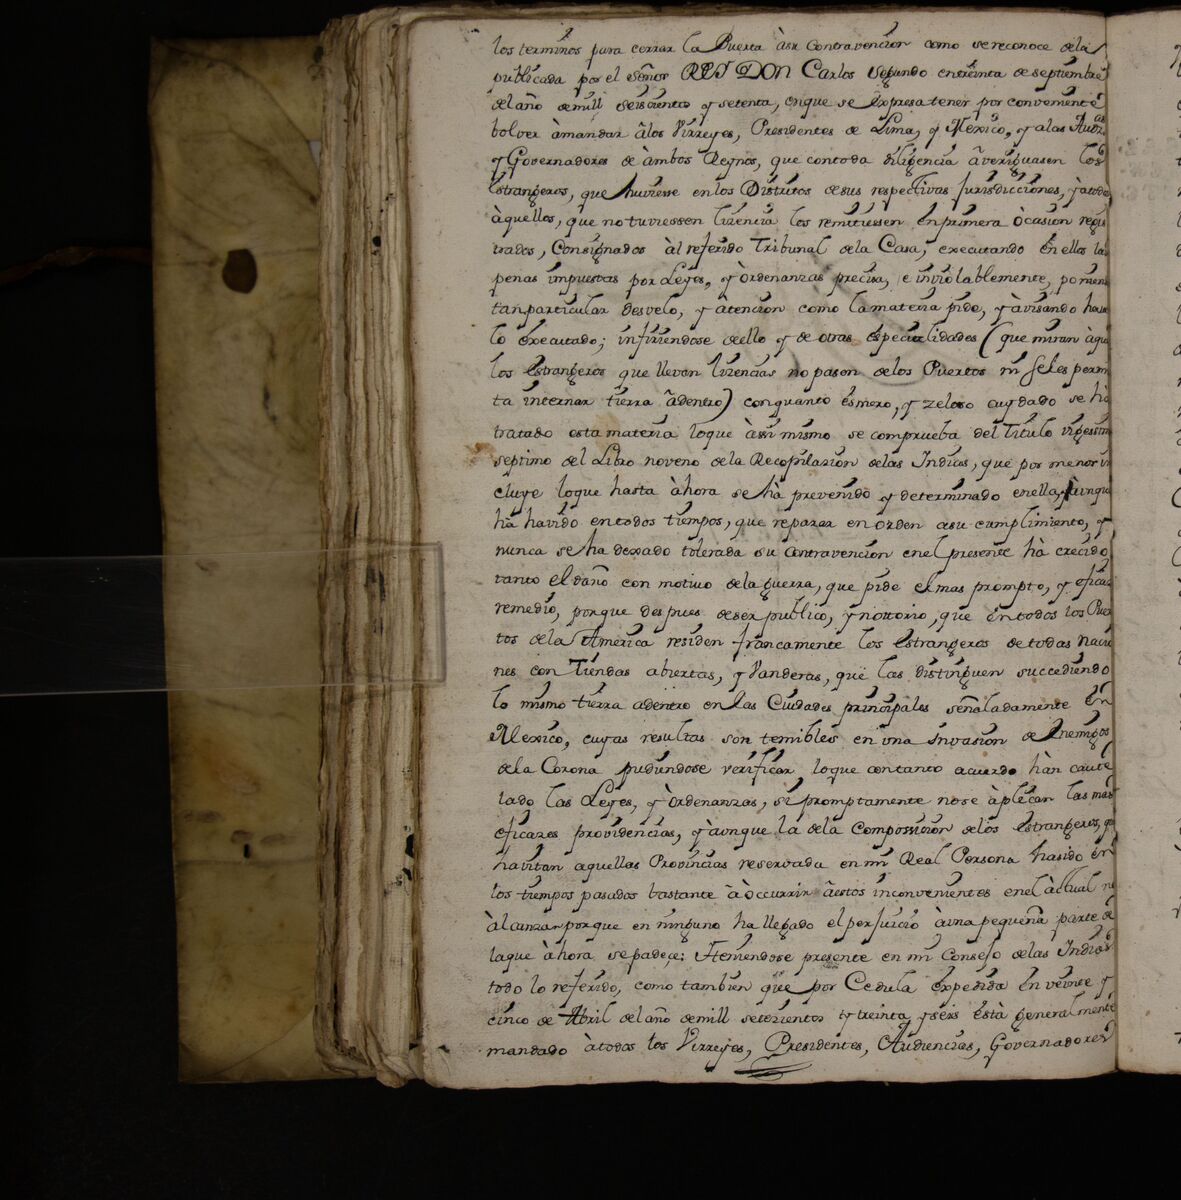 los terminos para cerrar la Puerta àsu Contravencion como se reconoce dela
publicada por el Señor REY DON Carlos Segundo entreinta de septiembre
del año demill seiscientos y setenta, enque se expresa tener por conveniente
bolver àmandar âlos Virreyes, Presidentes de Lima, y Mexico, y alas Aud.as
y Governadores de àmbos Reynos, que contoda diligencia âveriguasen los
estrangeros, que huviesse enlos Distritos desus respectivas Jurisdicciones, y àtodos
àquellos, que notuviessen lizencia los remitiessen enprimera òcasion regis
trados, Consignados àl referido Tribunal dela Casa, executando en ellos las
penas impuestas por Leyes, y òrdenanzas precisa, e inviolablemente, poniendo
tanparticular desvelo, y àtencion como lamateria pide, y àvisando haver
lo executado; infiriendose deello y de otras especialidades (que miran àque
los estrangeros que llevan lizencias no pasen delos Puertos ni seles permi
ta internar tierra âdentro) conquanto esmero, y zeloso cuydado se hà
tratado esta materia loque àssi mismo se comprueba del Titulo vigessimo
septimo del Libro noveno dela Recopilazion delas Indias, que por menor in
cluye loque hasta àhora se hà prevenido y determinado enella, y àunque
hà havido entodos tiempos, que reparar en orden asu cumplimiento, y
nunca se ha dexado tolerada su contravencion enel presente hà crecido
tanto el daño con motivo dela guerra, que pide el mas prompto, y eficaz
remedio, porque despues deser publico, y nottorio, que entodos los Puer
tos dela America residen francamente los estrangeros detodas nacio
nes con Tiendas abiertas, y Vanderas, que las distinguen succediendo
lo mismo tierra adentro en las Ciudades principales señaladamente en
Mexico, cuyas resultas son temibles en una Invasion de Enemigos
dela Corona pudiendose verificar loque contanto acuerdo hàn caute
lado las Leyes, y òrdenanzas, si promptamente nose àplican las mas
eficazes providencias, y àunque la dela Composicion delos estrangeros, que
havitan aquellas Provincias reservada en mi Real Persona hasido en
los tiempos pasados bastante â òccurrir âestos inconvenientes enel àctual no
àlcanza porque en ninguno ha llegado el perjuicio àuna pequeña parte de
laque àhora sepadeçe: Iteniendose presente en mi Consejo delas Indias
todo lo referido, como tambien que por Cedula expedida en veinte y
cinco de Abril del año demill setezientos y treinta y seis està generalmente
mandado àtodos los Virreyes, Presidentes, Audiencias, Governadores